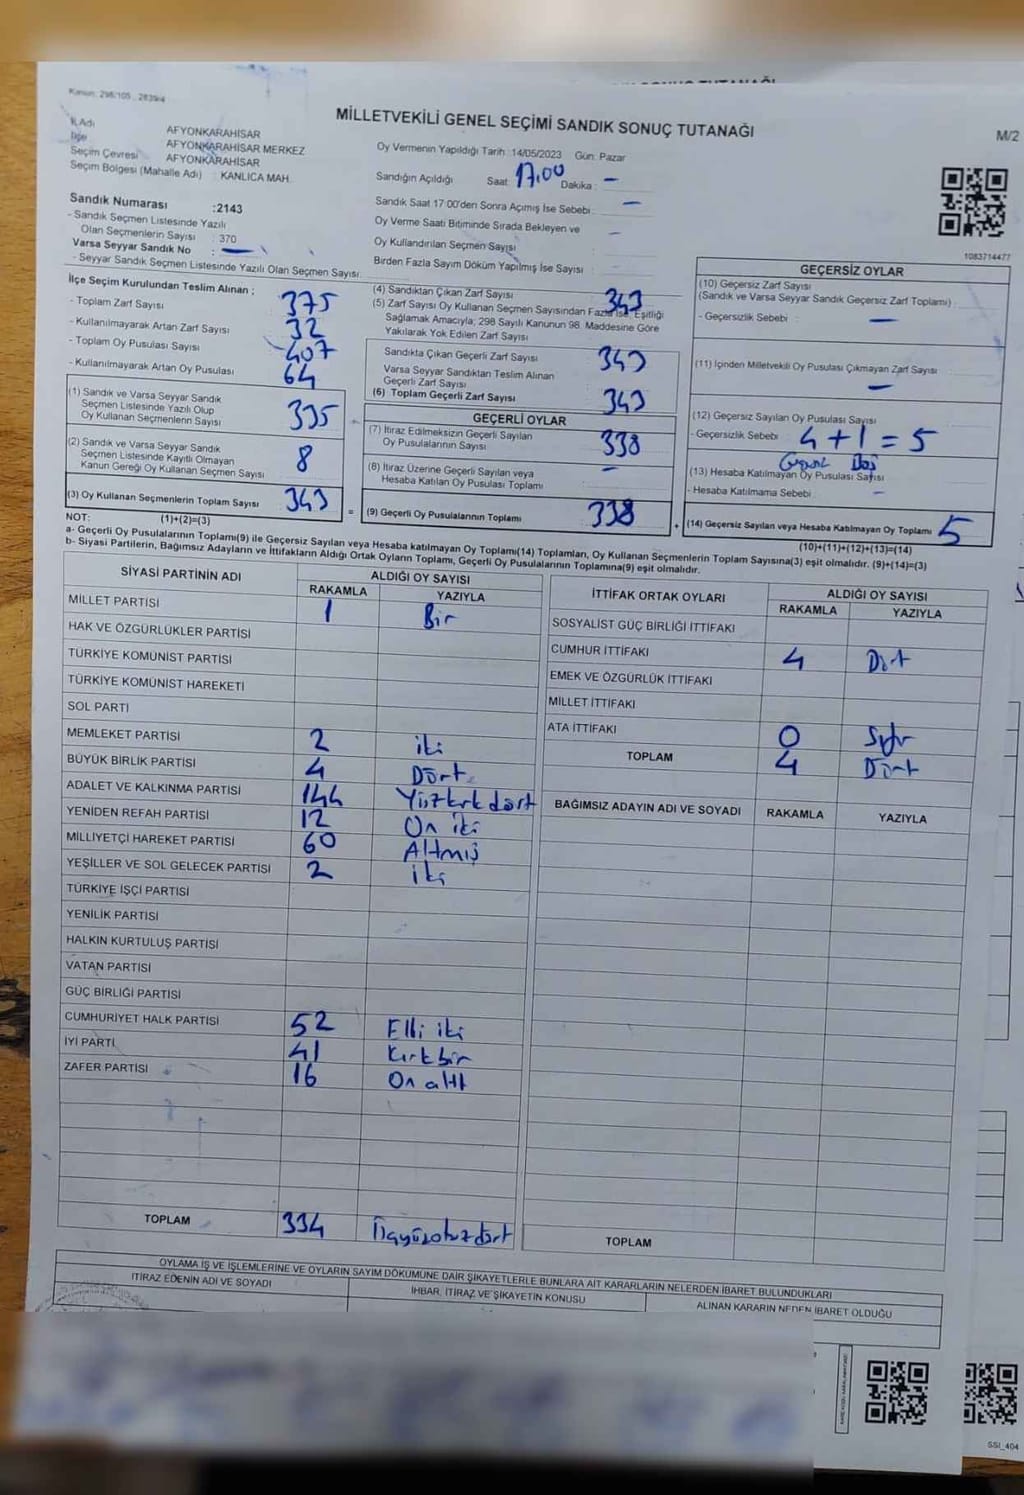 Kanun: 298/105 , 2839/4
MİLLETVEKİLİ GENEL SEÇİMİ SANDIK SONUÇ TUTANAĞI
M/2
İl Adı AFYONKARAHİSAR
İlçe AFYONKARAHİSAR MERKEZ
Seçim Çevresi AFYONKARAHİSAR
Seçim Bölgesi (Mahalle Adı) : KANLICA MAH.
Oy Vermenin Yapıldığı Tarih :14/05/2023 Gün: Pazar
Sandığın Açıldığı Saat: 17.00 Dakika : –
Sandık Saat 17:00'den Sonra Açılmış İse Sebebi : –
Oy Verme Saati Bitiminde Sırada Bekleyen ve
Oy Kullandırılan Seçmen Sayısı –
Birden Fazla Sayım Döküm Yapılmış İse Sayısı
Sandık Numarası :2143
- Sandık Seçmen Listesinde Yazılı
Olan Seçmenlerin Sayısı : 370
Varsa Seyyar Sandık No : –
- Seyyar Sandık Seçmen Listesinde Yazılı Olan Seçmen Sayısı:
1083714477
İlçe Seçim Kurulundan Teslim Alınan :
- Toplam Zarf Sayısı 375
- Kullanılmayarak Artan Zarf Sayısı 32
- Toplam Oy Pusulası Sayısı 407
- Kullanılmayarak Artan Oy Pusulası 64
(1) Sandık ve Varsa Seyyar Sandık
Seçmen Listesinde Yazılı Olup
Oy Kullanan Seçmenlerin Sayısı 335
(2) Sandık ve Varsa Seyyar Sandık
Seçmen Listesinde Kayıtlı Olmayan
Kanun Gereği Oy Kullanan Seçmen Sayısı 8
(3) Oy Kullanan Seçmenlerin Toplam Sayısı 343
(1)+(2)=(3)
(4) Sandıktan Çıkan Zarf Sayısı 343
(5) Zarf Sayısı Oy Kullanan Seçmen Sayısından Fazla İse, Eşitliği
Sağlamak Amacıyla; 298 Sayılı Kanunun 98. Maddesine Göre
Yakılarak Yok Edilen Zarf Sayısı
Sandıkta Çıkan Geçerli Zarf Sayısı 343
Varsa Seyyar Sandıktan Teslim Alınan
Geçerli Zarf Sayısı
(6) Toplam Geçerli Zarf Sayısı 343
GEÇERLİ OYLAR
(7) İtiraz Edilmeksizin Geçerli Sayılan
Oy Pusulalarının Sayısı 338
(8) İtiraz Üzerine Geçerli Sayılan veya
Hesaba Katılan Oy Pusulası Toplamı –
(9) Geçerli Oy Pusulalarının Toplamı 338
GEÇERSİZ OYLAR
(10) Geçersiz Zarf Sayısı
(Sandık ve Varsa Seyyar Sandık Geçersiz Zarf Toplamı) :
- Geçersizlik Sebebi : –
(11) İçinden Milletvekili Oy Pusulası Çıkmayan Zarf Sayısı
–
(12) Geçersiz Sayılan Oy Pusulası Sayısı
- Geçersizlik Sebebi 4 + 1 = 5
(13) Hesaba Katılmayan Oy Pusulası Sayısı
- Hesaba Katılmama Sebebi –
(14) Geçersiz Sayılan veya Hesaba Katılmayan Oy Toplamı 5
(10)+(11)+(12)+(13)=(14)
NOT:
a- Geçerli Oy Pusulalarının Toplamı(9) ile Geçersiz Sayılan veya Hesaba katılmayan Oy Toplamı(14) Toplamları, Oy Kullanan Seçmenlerin Toplam Sayısına(3) eşit olmalıdır. (9)+(14)=(3)
b- Siyasi Partilerin, Bağımsız Adayların ve İttifakların Aldığı Ortak Oyların Toplamı, Geçerli Oy Pusulalarının Toplamına(9) eşit olmalıdır.
SİYASİ PARTİNİN ADI ALDIĞI OY SAYISI
RAKAMLA YAZIYLA
MİLLET PARTİSİ 1 Bir
HAK VE ÖZGÜRLÜKLER PARTİSİ
TÜRKİYE KOMÜNİST PARTİSİ
TÜRKİYE KOMÜNİST HAREKETİ
SOL PARTİ
MEMLEKET PARTİSİ 2 iki
BÜYÜK BİRLİK PARTİSİ 4 Dört
ADALET VE KALKINMA PARTİSİ 144 Yüzkırkdört
YENİDEN REFAH PARTİSİ 12 On iki
MİLLİYETÇİ HAREKET PARTİSİ 60 Altmış
YEŞİLLER VE SOL GELECEK PARTİSİ 2 iki
TÜRKİYE İŞÇİ PARTİSİ
YENİLİK PARTİSİ
HALKIN KURTULUŞ PARTİSİ
VATAN PARTİSİ
GÜÇ BİRLİĞİ PARTİSİ
CUMHURİYET HALK PARTİSİ 52 Elli iki
İYİ PARTİ 41 Kırkbir
ZAFER PARTİSİ 16 On altı
TOPLAM 334 Üçyüzotuzdört
İTTİFAK ORTAK OYLARI ALDIĞI OY SAYISI
RAKAMLA YAZIYLA
SOSYALİST GÜÇ BİRLİĞİ İTTİFAKI
CUMHUR İTTİFAKI 4 Dört
EMEK VE ÖZGÜRLÜK İTTİFAKI
MİLLET İTTİFAKI
ATA İTTİFAKI 0 Sıfır
TOPLAM 4 Dört
BAĞIMSIZ ADAYIN ADI VE SOYADI RAKAMLA YAZIYLA
TOPLAM
OYLAMA İŞ VE İŞLEMLERİNE VE OYLARIN SAYIM DÖKÜMÜNE DAİR ŞİKAYETLERLE BUNLARA AİT KARARLARIN NELERDEN İBARET BULUNDUKLARI
İTİRAZ EDENİN ADI VE SOYADI
İHBAR, İTİRAZ VE ŞİKAYETİN KONUSU
ALINAN KARARIN NEDEN İBARET OLDUĞU
SSI_404